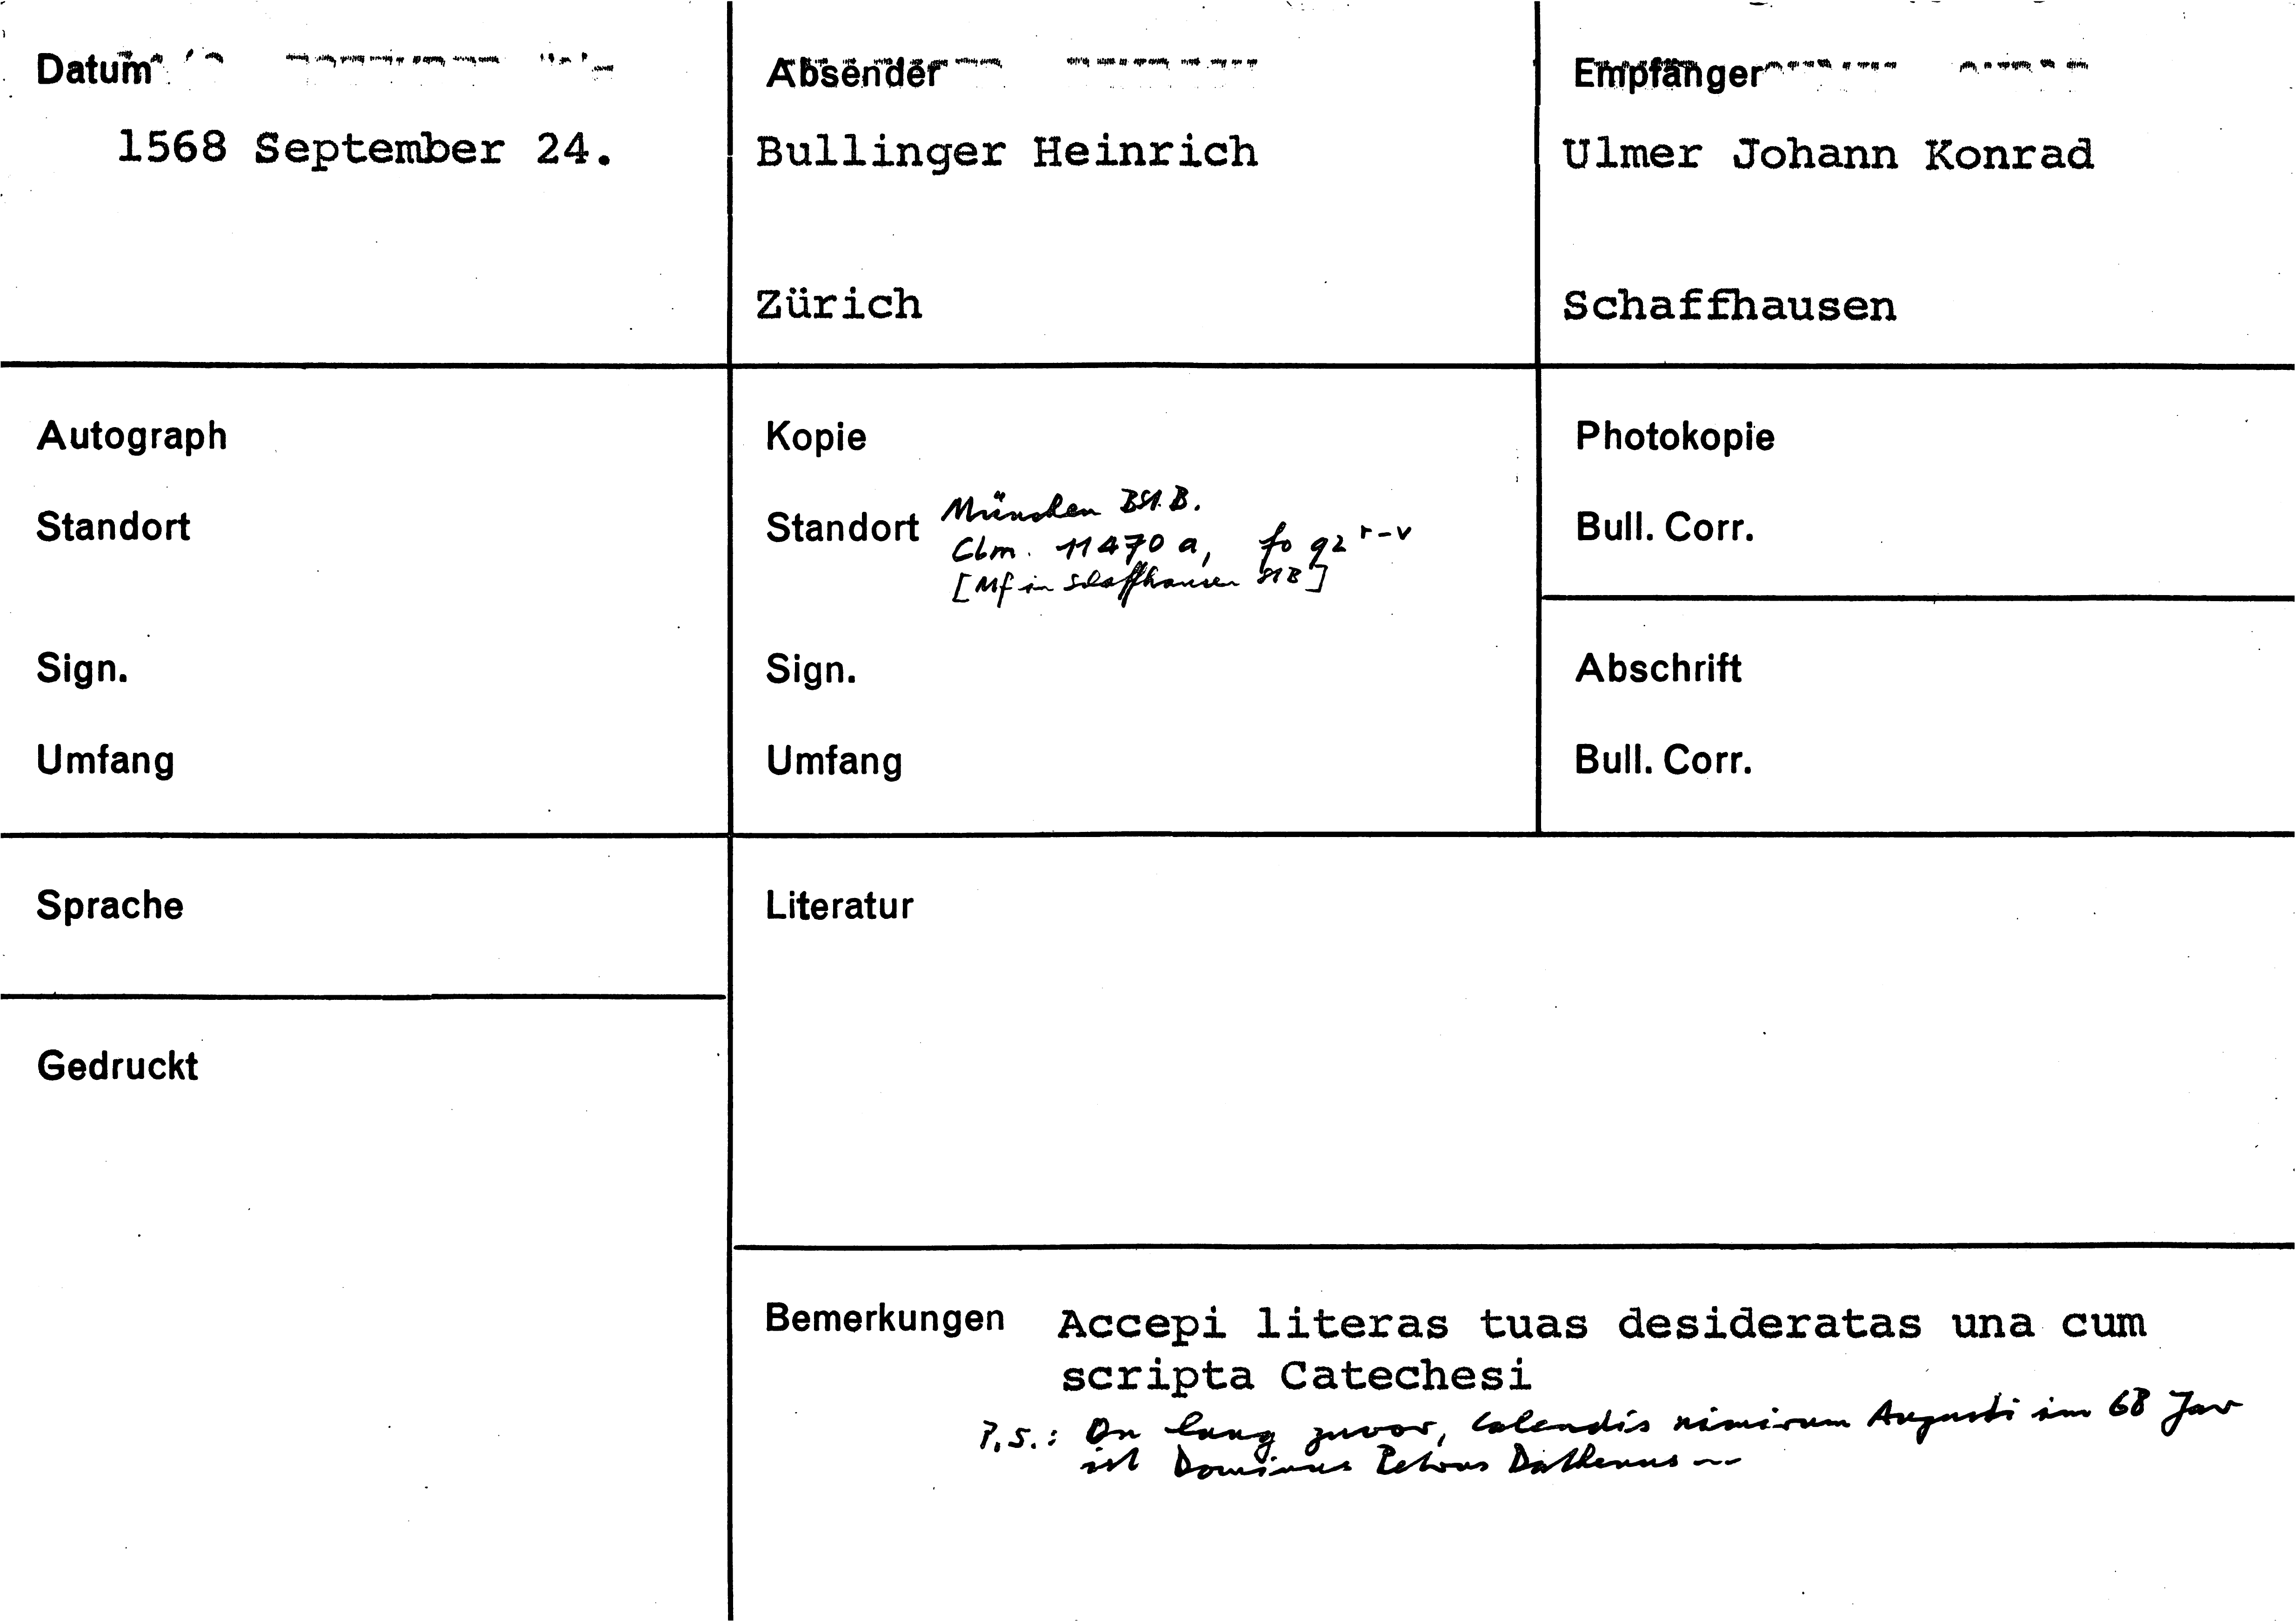 Datum
1568 September 24.
Absender
Bullinger Heinrich
Zürich
Empfänger
Ulmer Johann Konrad
Schaffhausen
Autograph
Standort
Sign.
Umfang
Kopie
Standort München BSt.B.
Clm. 11470 a, fo 92 r-v
[Mf in Schaffhausen StB]
Sign.
Umfang
Photokopie
Bull. Corr.
Abschrift
Bull. Corr.
Sprache
Gedruckt
Literatur
Bemerkungen Accepi literas tuas desideratas una cum
scripta Catechesi
P.S.: On lang zuvor, Calendis nimirum Augusti im 68 Jar
ist Dominus Petrus Dathenus